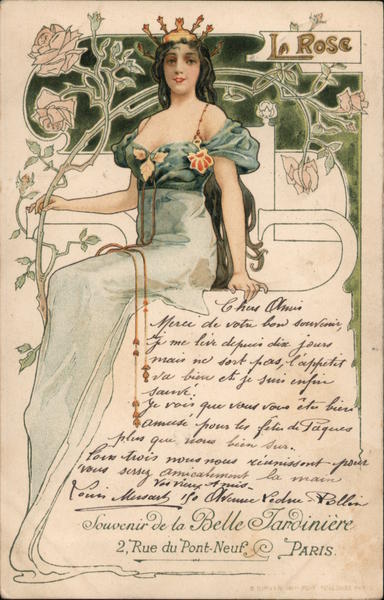 La Rose
Chers Amis
Merci de votre bon souvenir,
Je me lève depuis dix jours
mais ne sort pas, l'appétit
va bien et je suis enfin
sauvé.
Je vois que vous vous êtes bien
amusé pour les fêtes de Pâques
plus que nous bien sur.
tous trois nous nous réunissons pour
vous serrez amicalement la main
Vos vieux Amis
Louis 150 Avenue Ledru Rollin
Souvenir de la Belle Jardinière
2, Rue du Pont-Neuf PARIS.